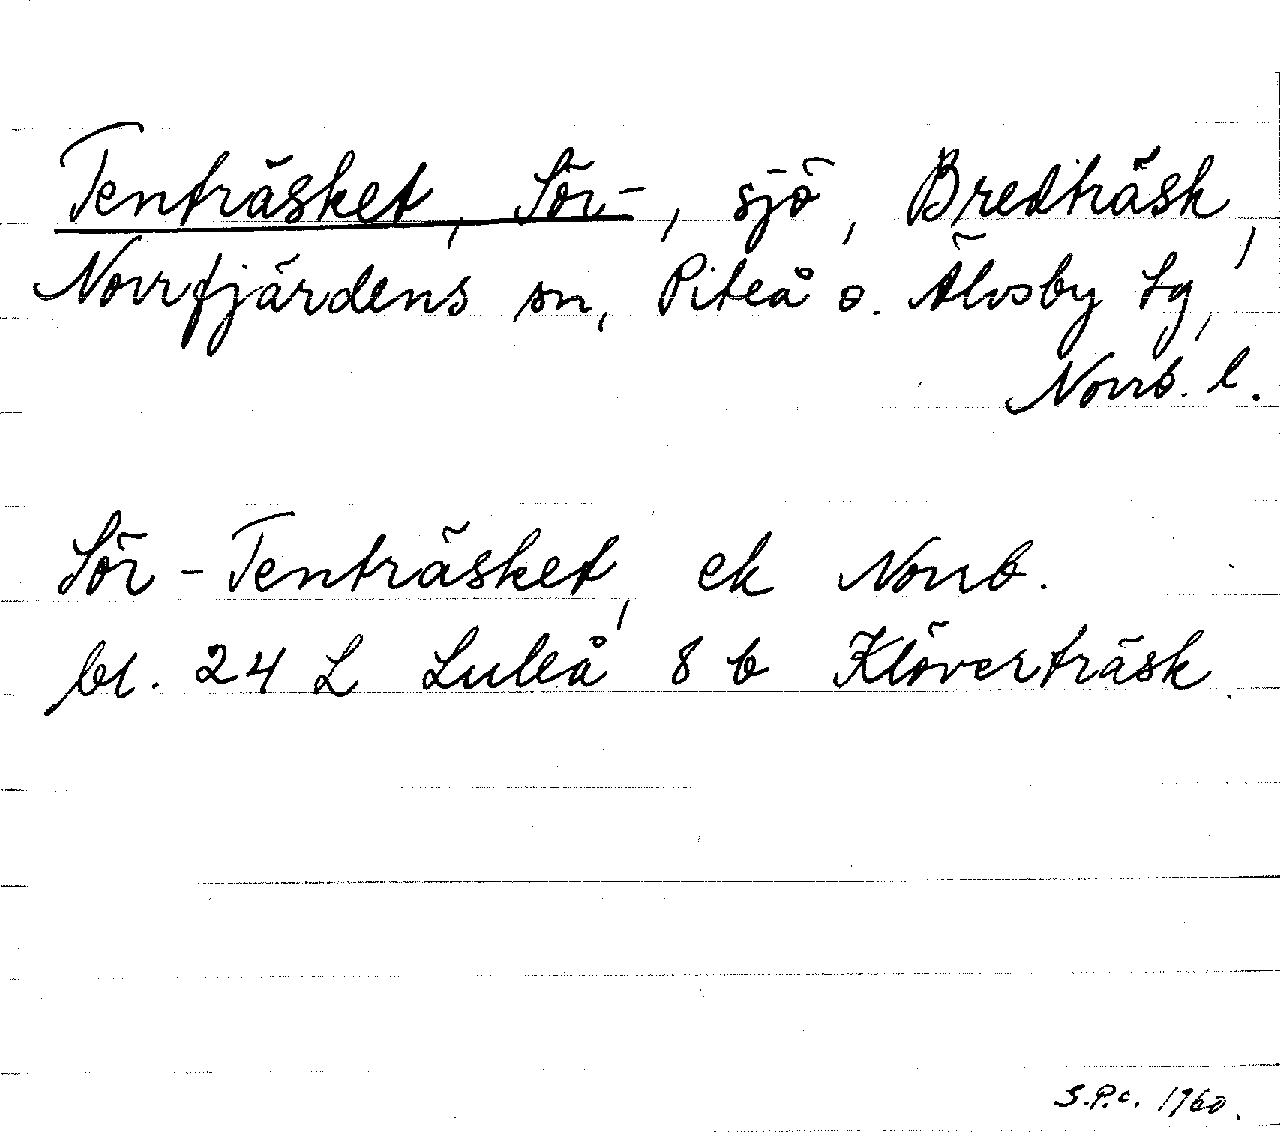 Tenträsket, Sör-, sjö, Bredträsk,
Norrfjärdens sn, Piteå o. Älvsby tg,
Norrb. l.
Sör-Tenträsket, ek Norrb.
bl. 24 L Luleå 8 b Klöverträsk.
S.P.c. 1960.